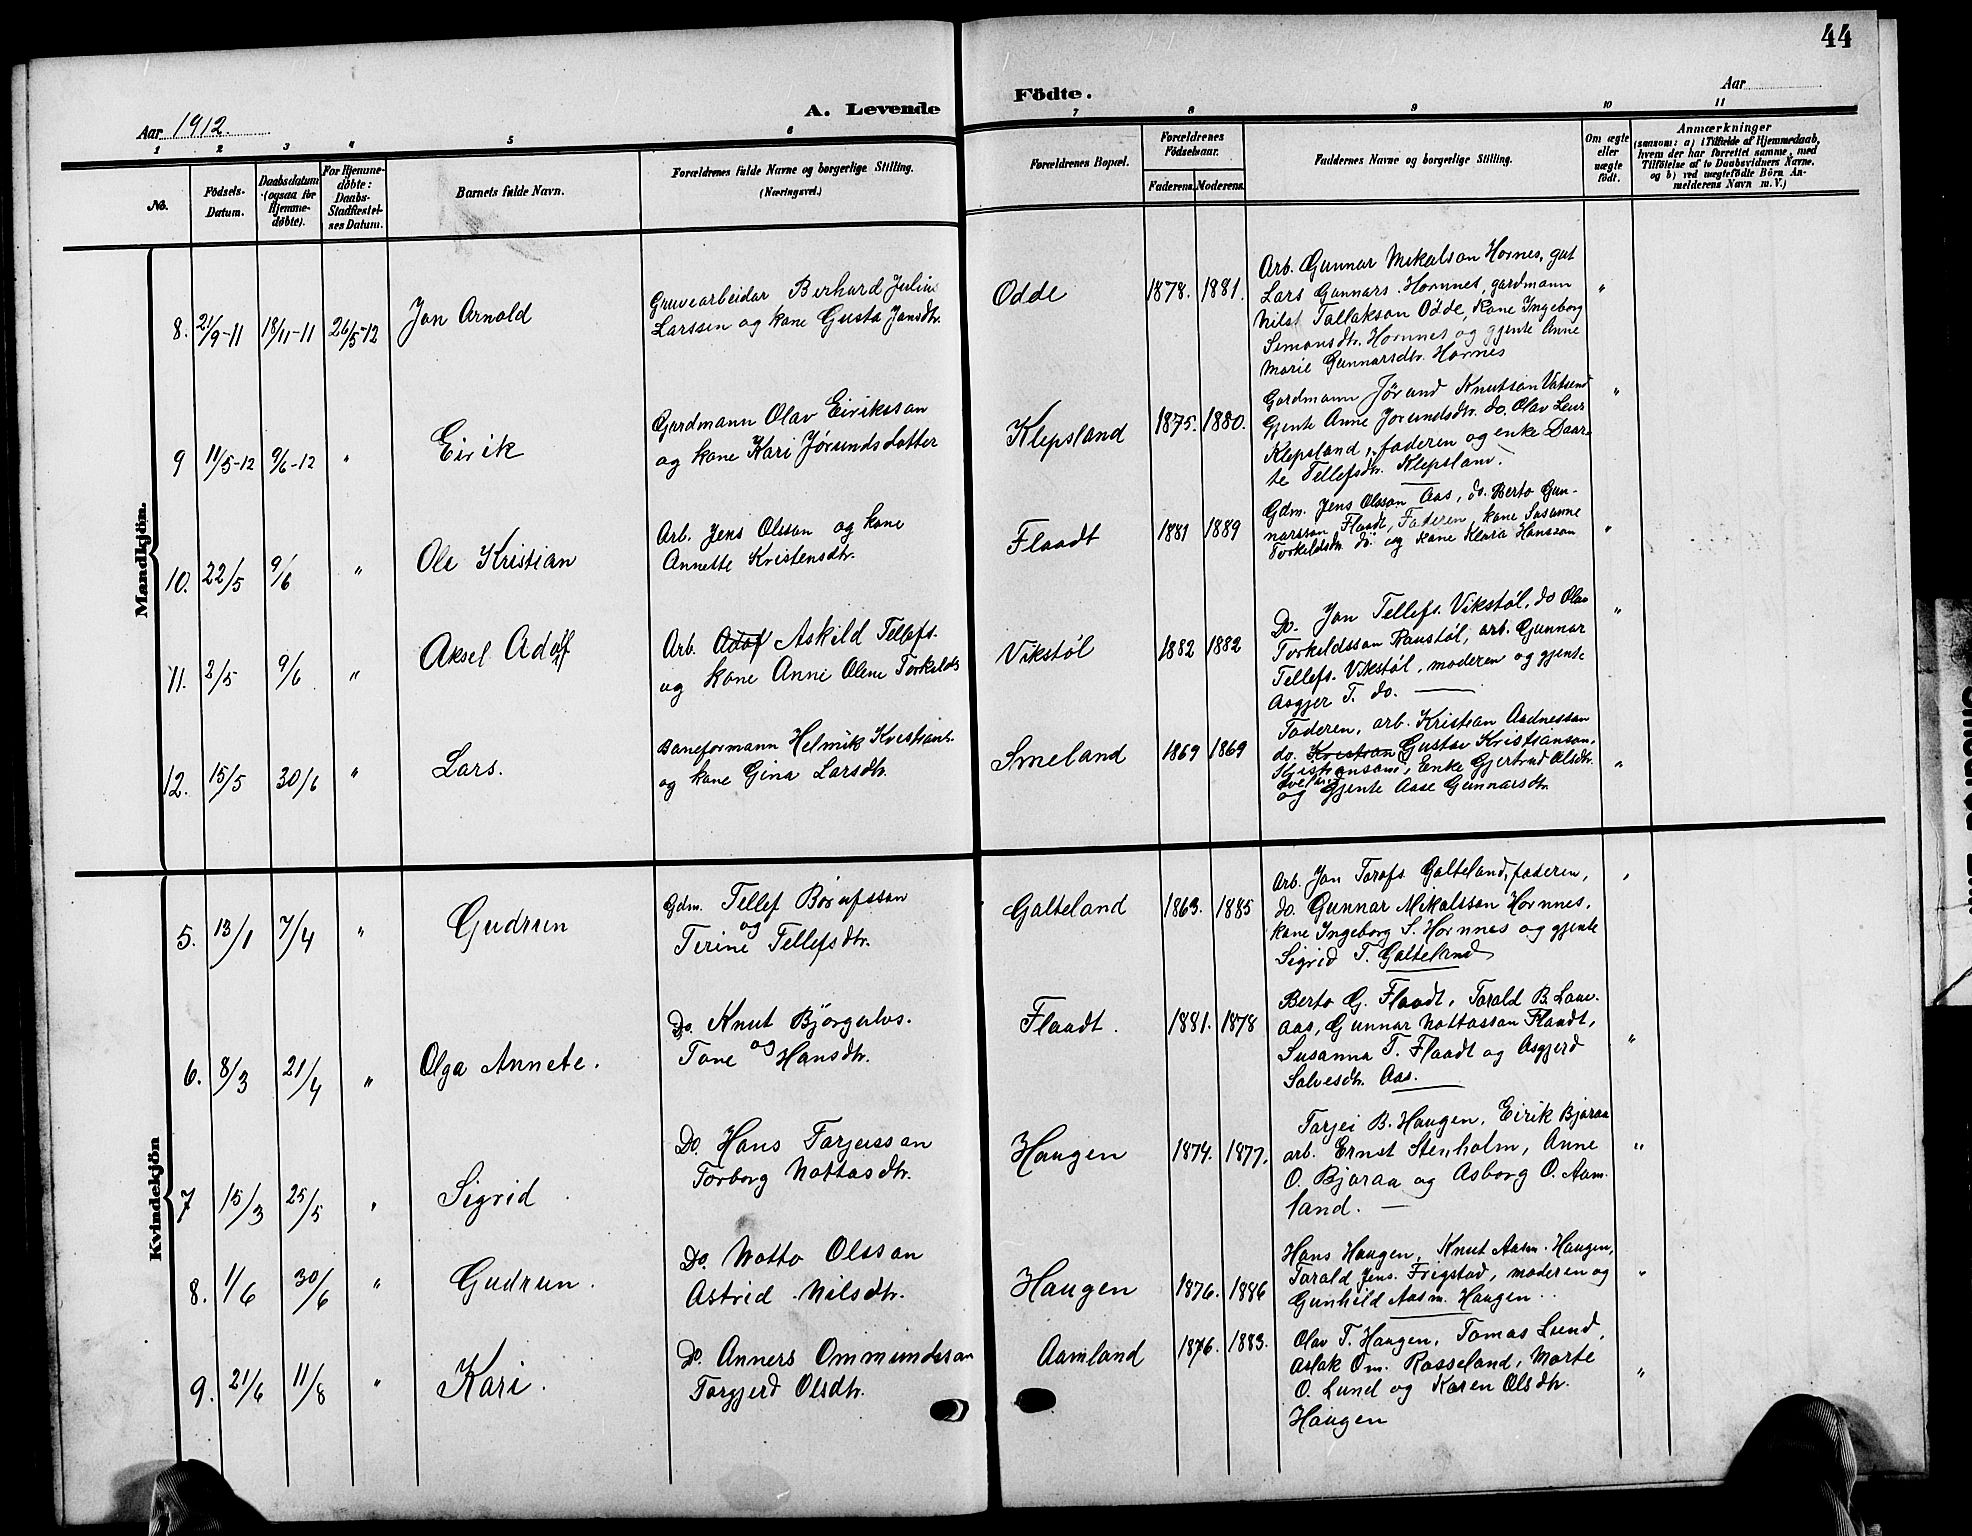 44
A. Levende Födte.
Aar 1912.
Aar
1 2 3 4 5 6 7 8 9 10 11
No.
Födsels-Datum.
Daabsdatum (ogsaa for Hjemme-døbte).
For Hjemme-døbte: Daabs-Stadfæstel-ses Datum.
Barnets fulde Navn.
Forældrenes fulde Navne og borgerlige Stilling.
(Næringsvei.)
Forældrenes Bopæl.
Forældrenes Födselsaar.
Faderens. Moderens.
Faddernes Navne og borgerlige Stilling.
Om ægte eller uægte født.
Anmærkninger
(saasom: a) i Tilfælde af Hjemmedaab, hvem der har forrettet samme, med Tilföielse af to Daabsvidners Navne, og b) ved uægtefödte Börn Anmelderens Navn m. V.)
Mandkjön.
8. 21/9-11 18/11-11 26/5-12 Jon Arnold
Gruvearbeidar Berhard Julius
Larssen og kone Gusta Jansdtr.
Odde 1878. 1881.
Arb. Gunnar Mikalson Hornes, gut
Lars Gunnars. Hornnes, gardmann
Nils Tallakson Odde, Kone Ingeborg
Simonsdtr. Hornnes og gjente Anne
Marie Gunnarsdtr. Hornes
"
9 11/5-12 9/6-12 " Eirik
Gardmann Olav Eiriksson
og kone Kari Jørundsdotter
Klepsland 1875. 1880.
Gardmann Jørund Knutson Vatsend
Gjente Anne Jorundsdtr. do. Olav
Klepsland, faderen og enke Daar-
te Tellefsdtr. Klepsland.
"
10. 22/5 9/6 " Ole Kristian
Arb. Jens Olsson og kone
Annette Kristensdtr.
Flaadt 1881 1889
Gdm. Jens Olsson Aas, do. Berto Gun-
narsson Flaadt, Faderen, kone Susanne
Torkildsdtr. do. og kone Klara Hansson
"
11. 2/5 9/6 " Aksel Adolf
Arb. Adof Askild Tellefs.
og kone Anne Olene Torkilds
Vikstøl 1882 1882
Do. Jon Tellefs. Vikstøl, do Olav
Torkeldsson Raustøl, arb. Gunnar
Tellefs. Vikstøl, moderen og gjente
Asgjer T. do.
"
12. 15/5 30/6 " Lars.
Baneformann Helmik Kristians.
og kone Gina Larsdtr.
Smeland 1869 1869
Faderen, arb. Kristian Aadnesson
do. Kristian Gustav Kristianson,
Kristiansand, Enke Gjertrud Olsdtr.
og gjente Aase Gunnarsdtr.
"
Kvindekjön
5. 13/1 7/4 " Gudrun
Gdm. Tellef Børufsson
og
Terine Tellefsdtr.
Galteland 1863. 1885
Arb. Jon Torofs Galteland, faderen,
do. Gunnar Mikalsson Hornnes,
kone Ingeborg S. Hornnes og gjente
Sigrid T. Galteland
"
6. 8/3 21/4 " Olga Annete.
Do. Knut Bjørgulvs.
og
Tone Hansdtr.
Flaadt. 1881. 1878
Berto G. Flaadt, Torald B. Lauv-
aas, Gunnar Nottosson Flaadt,
Susanna T. Flaadt og Asgjerd
Salvesdtr. Aas.
"
7 15/3 25/5 " Sigrid.
Do. Hans Tarjeisson
Torborg Nottosdtr.
Haugen 1874. 1877.
Tarjei B. Haugen, Eirik Bjoraa
arb. Ernst Stenholm, Anne
O. Bjoraa og Asborg O. Aam-
land.
"
8. 1/6 30/6 " Gudrun.
Do. Notto Olsson
Astrid Nilsdtr.
Haugen 1876. 1886
Hans Haugen, Knut Aasm. Haugen,
Torald Jens. Frigstad, moderen og
Gunhild Aasm. Haugen.
"
9. 21/6 11/8 " Kari.
Do. Anners Ommundsson
Torgjerd Olsdtr.
Aamland 1876. 1883.
Olav T. Haugen, Tomas Lund,
Aslak Om. Rosseland, Marte
O. Lund og Karen Olsdtr.
Haugen
"